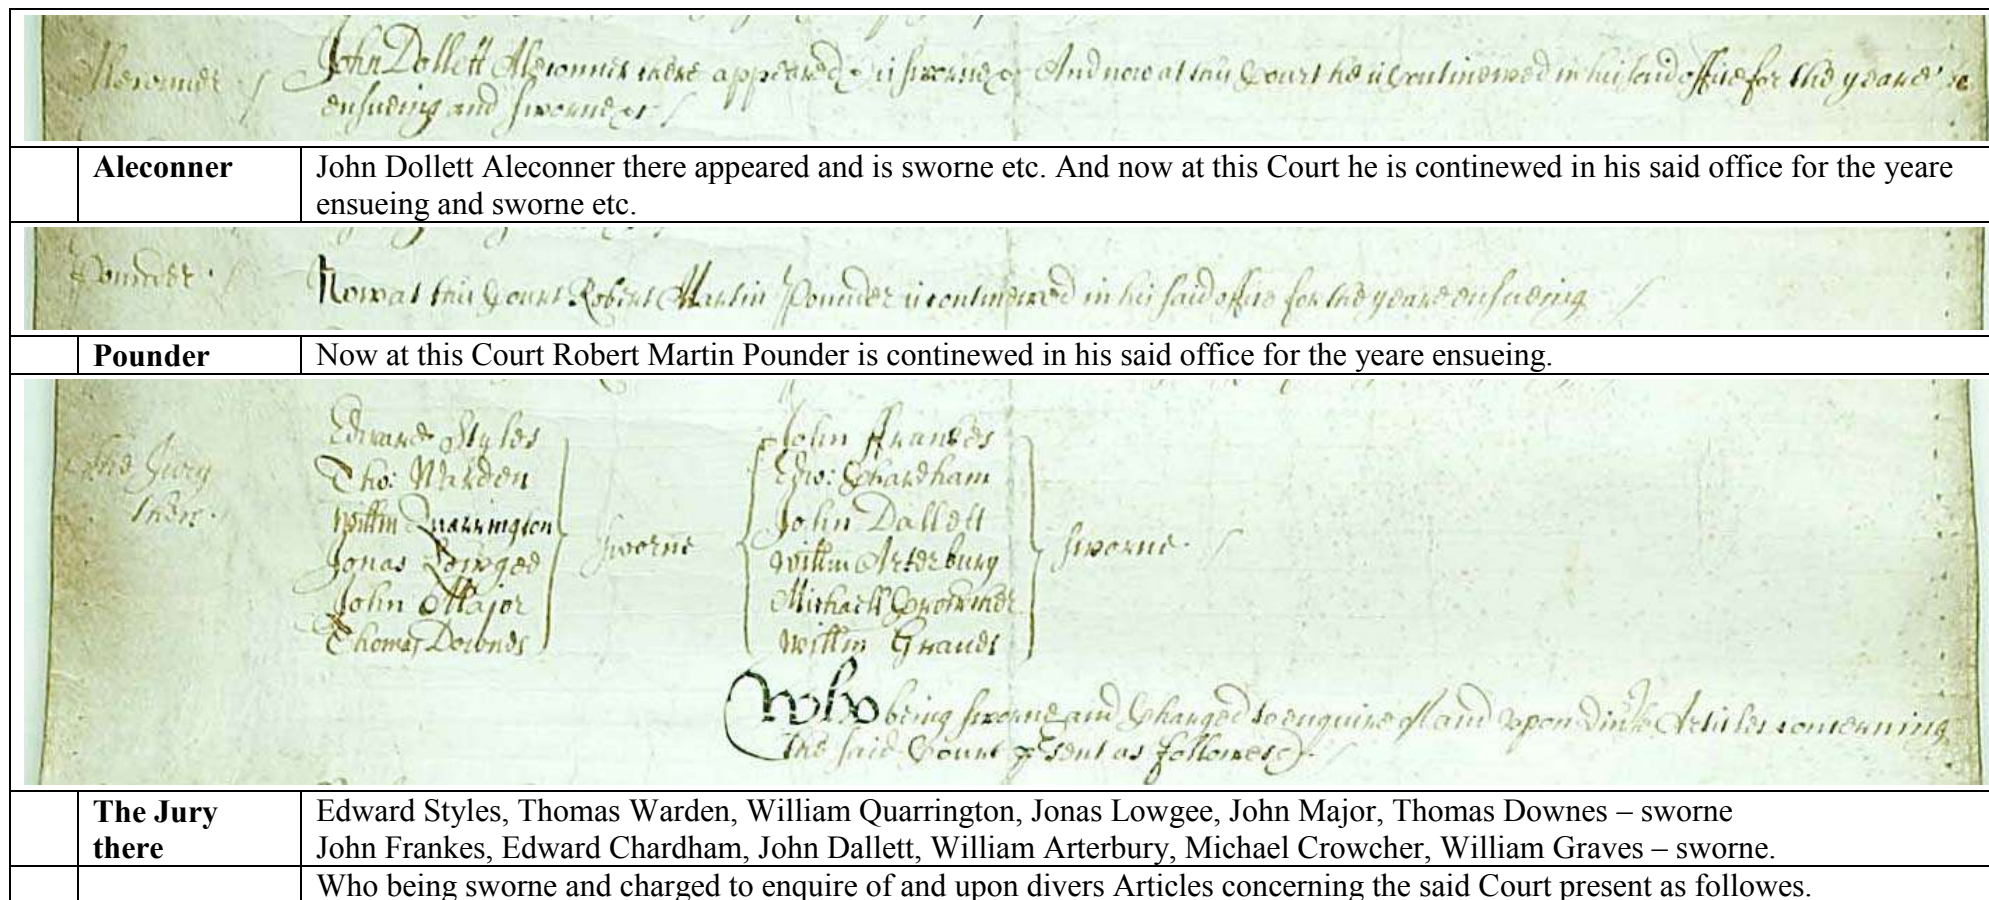 Aleconner
John Dollett Aleconner there appeared & is sworne &c And now at this Court he is Continewed in his said office for the yeare
ensueing and sworne &c
Aleconner
John Dollett Aleconner there appeared and is sworne etc. And now at this Court he is continewed in his said office for the yeare
ensueing and sworne etc.
Pounder
Now at this Court Robert Martin Pounder is continewed in his said office for the yeare ensueing
Pounder
Now at this Court Robert Martin Pounder is continewed in his said office for the yeare ensueing.
The Jury
there
Edward Styles
Tho: Warden
Willm Quarrington
Jonas Lowgee
John Major
Thomas Downes
sworne
John Frankes
Edw: Chardham
John Dallett
Willm Arterbury
Michaell Crowcher
Willm Graves
sworne
Who being sworne and Charged to enquire of and upon Articles concerning
the said Court as followes
The Jury
there
Edward Styles, Thomas Warden, William Quarrington, Jonas Lowgee, John Major, Thomas Downes – sworne
John Frankes, Edward Chardham, John Dallett, William Arterbury, Michael Crowcher, William Graves – sworne.
Who being sworne and charged to enquire of and upon divers Articles concerning the said Court present as followes.